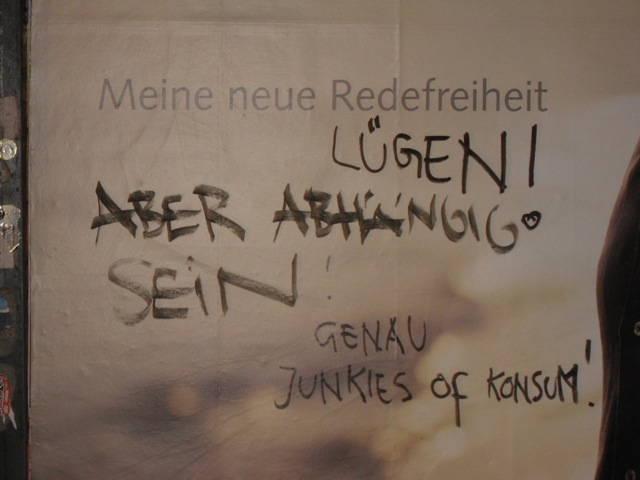 Meine neue Redefreiheit
LÜGEN!
ABER ABHÄNGIG
SEiN!
GENAU
JUNKIES of KONSUM!